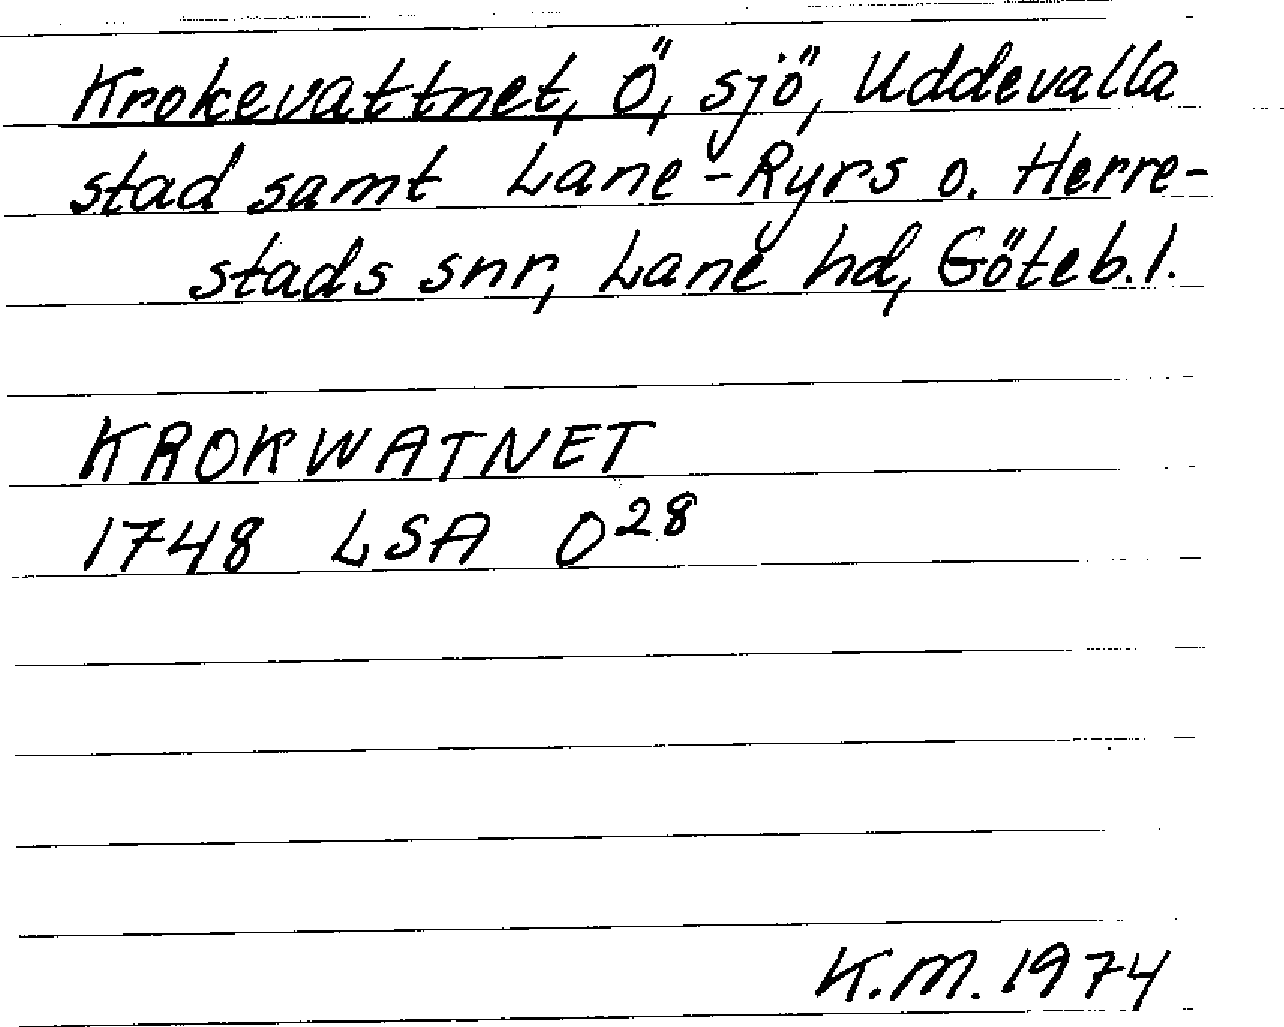 Krokevattnet, Ö, sjö, Uddevalla
stad samt Lane-Ryrs o. Herre-
stads snr, Lane hd, Göteb.l.
KROKWATNET
1748 LSA O²⁸
K.M. 1974